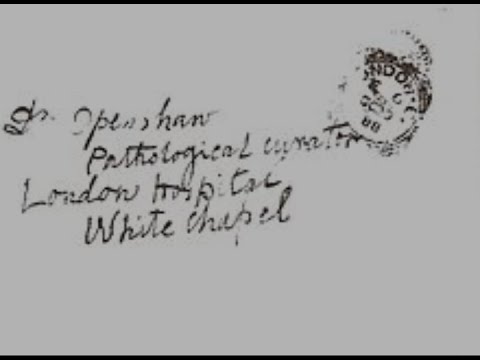 Dr. Openshaw
Pathological curator
London Hospital
White chapel
LONDON
OC
88